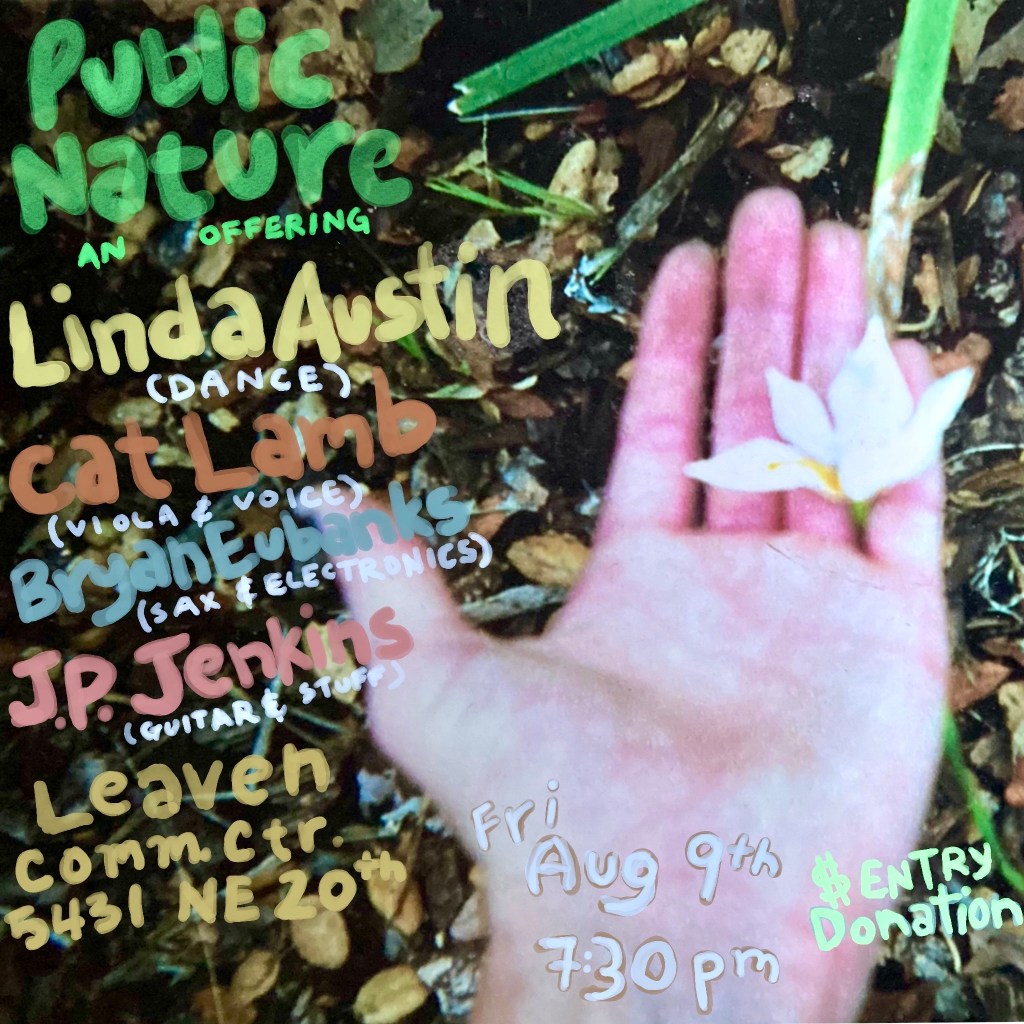 Public
Nature
AN OFFERING
Linda Austin
(DANCE)
Cat Lamb
(VIOLA & VOICE)
Bryan Eubanks
(SAX & ELECTRONICS)
J.P. Jenkins
(GUITAR & STUFF)
Leaven
Comm. Ctr.
5431 NE 20th
Fri
Aug 9th
7:30 pm
$ ENTRY
Donation